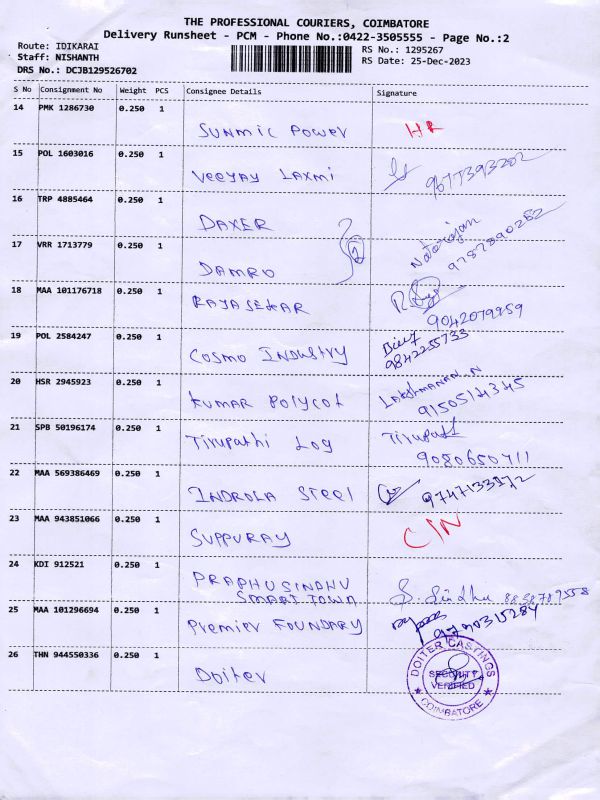 THE PROFESSIONAL COURIERS, COIMBATORE
Delivery Runsheet - PCM - Phone No.:0422-3505555 - Page No.:2
Route: IDIKARAI
RS No.: 1295267
Staff: NISHANTH
RS Date: 25-Dec-2023
DRS No.: DCJB129526702
S No Consignment No Weight PCS Consignee Details Signature
14 PMK 1286730 0.250 1 SUNMIC POWER HR
15 POL 1603016 0.250 1 VEEYAY LAXMI 9677393202
16 TRP 4885464 0.250 1 DAXER
17 VRR 1713779 0.250 1 DAMRO 2 Natarajan 9787890262
18 MAA 101176718 0.250 1 RAJASEKAR 9042079259
19 POL 2584247 0.250 1 COSMO INDUSTRY 9842255733
20 HSR 2945923 0.250 1 KUMAR POLYCOT LAKSHMANAN.N 9150514345
21 SPB 50196174 0.250 1 Tirupathi Log Tirupati 9080650711
22 MAA 569386469 0.250 1 INDROLA STEEL
23 MAA 943851066 0.250 1 SUPPURAY C/N
24 KDI 912521 0.250 1 PRAPHUSINDHU S. Sindhu
SMART TOWN
25 MAA 101296694 0.250 1 Premier FOUNDARY 9790315284
26 THN 944550336 0.250 1 Doiter
DOITER CASTINGS
SECURITY
VERIFIED
COIMBATORE